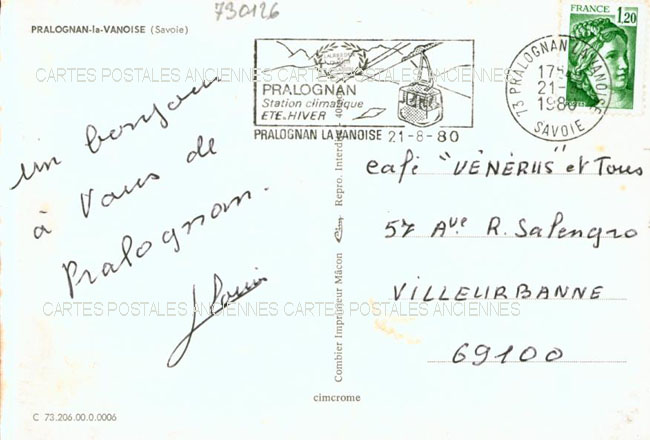 730126
PRALOGNAN-la-VANOISE (Savoie)
FRANCE
1,20
PRALOGNAN
Station climatique
ETE-HIVER
PRALOGNAN LA VANOISE 21-8-80
73 PRALOGNAN LA VANOISE
21-
1980
SAVOIE
CARTES POSTALES ANCIENNES CARTES POSTALES ANCIENNES
un bonjour
à vous de
Pralognan.
Louis
café "VÉNÉRUS" et Tous
57 Ave R. Salengro
VILLEURBANNE
69100
CARTES POSTALES ANCIENNES CARTES POSTALES ANCIENNES
Combier Imprimeur Mâcon Cim Repro. Interdite
cimcrome
C 73.206.00.0.0006